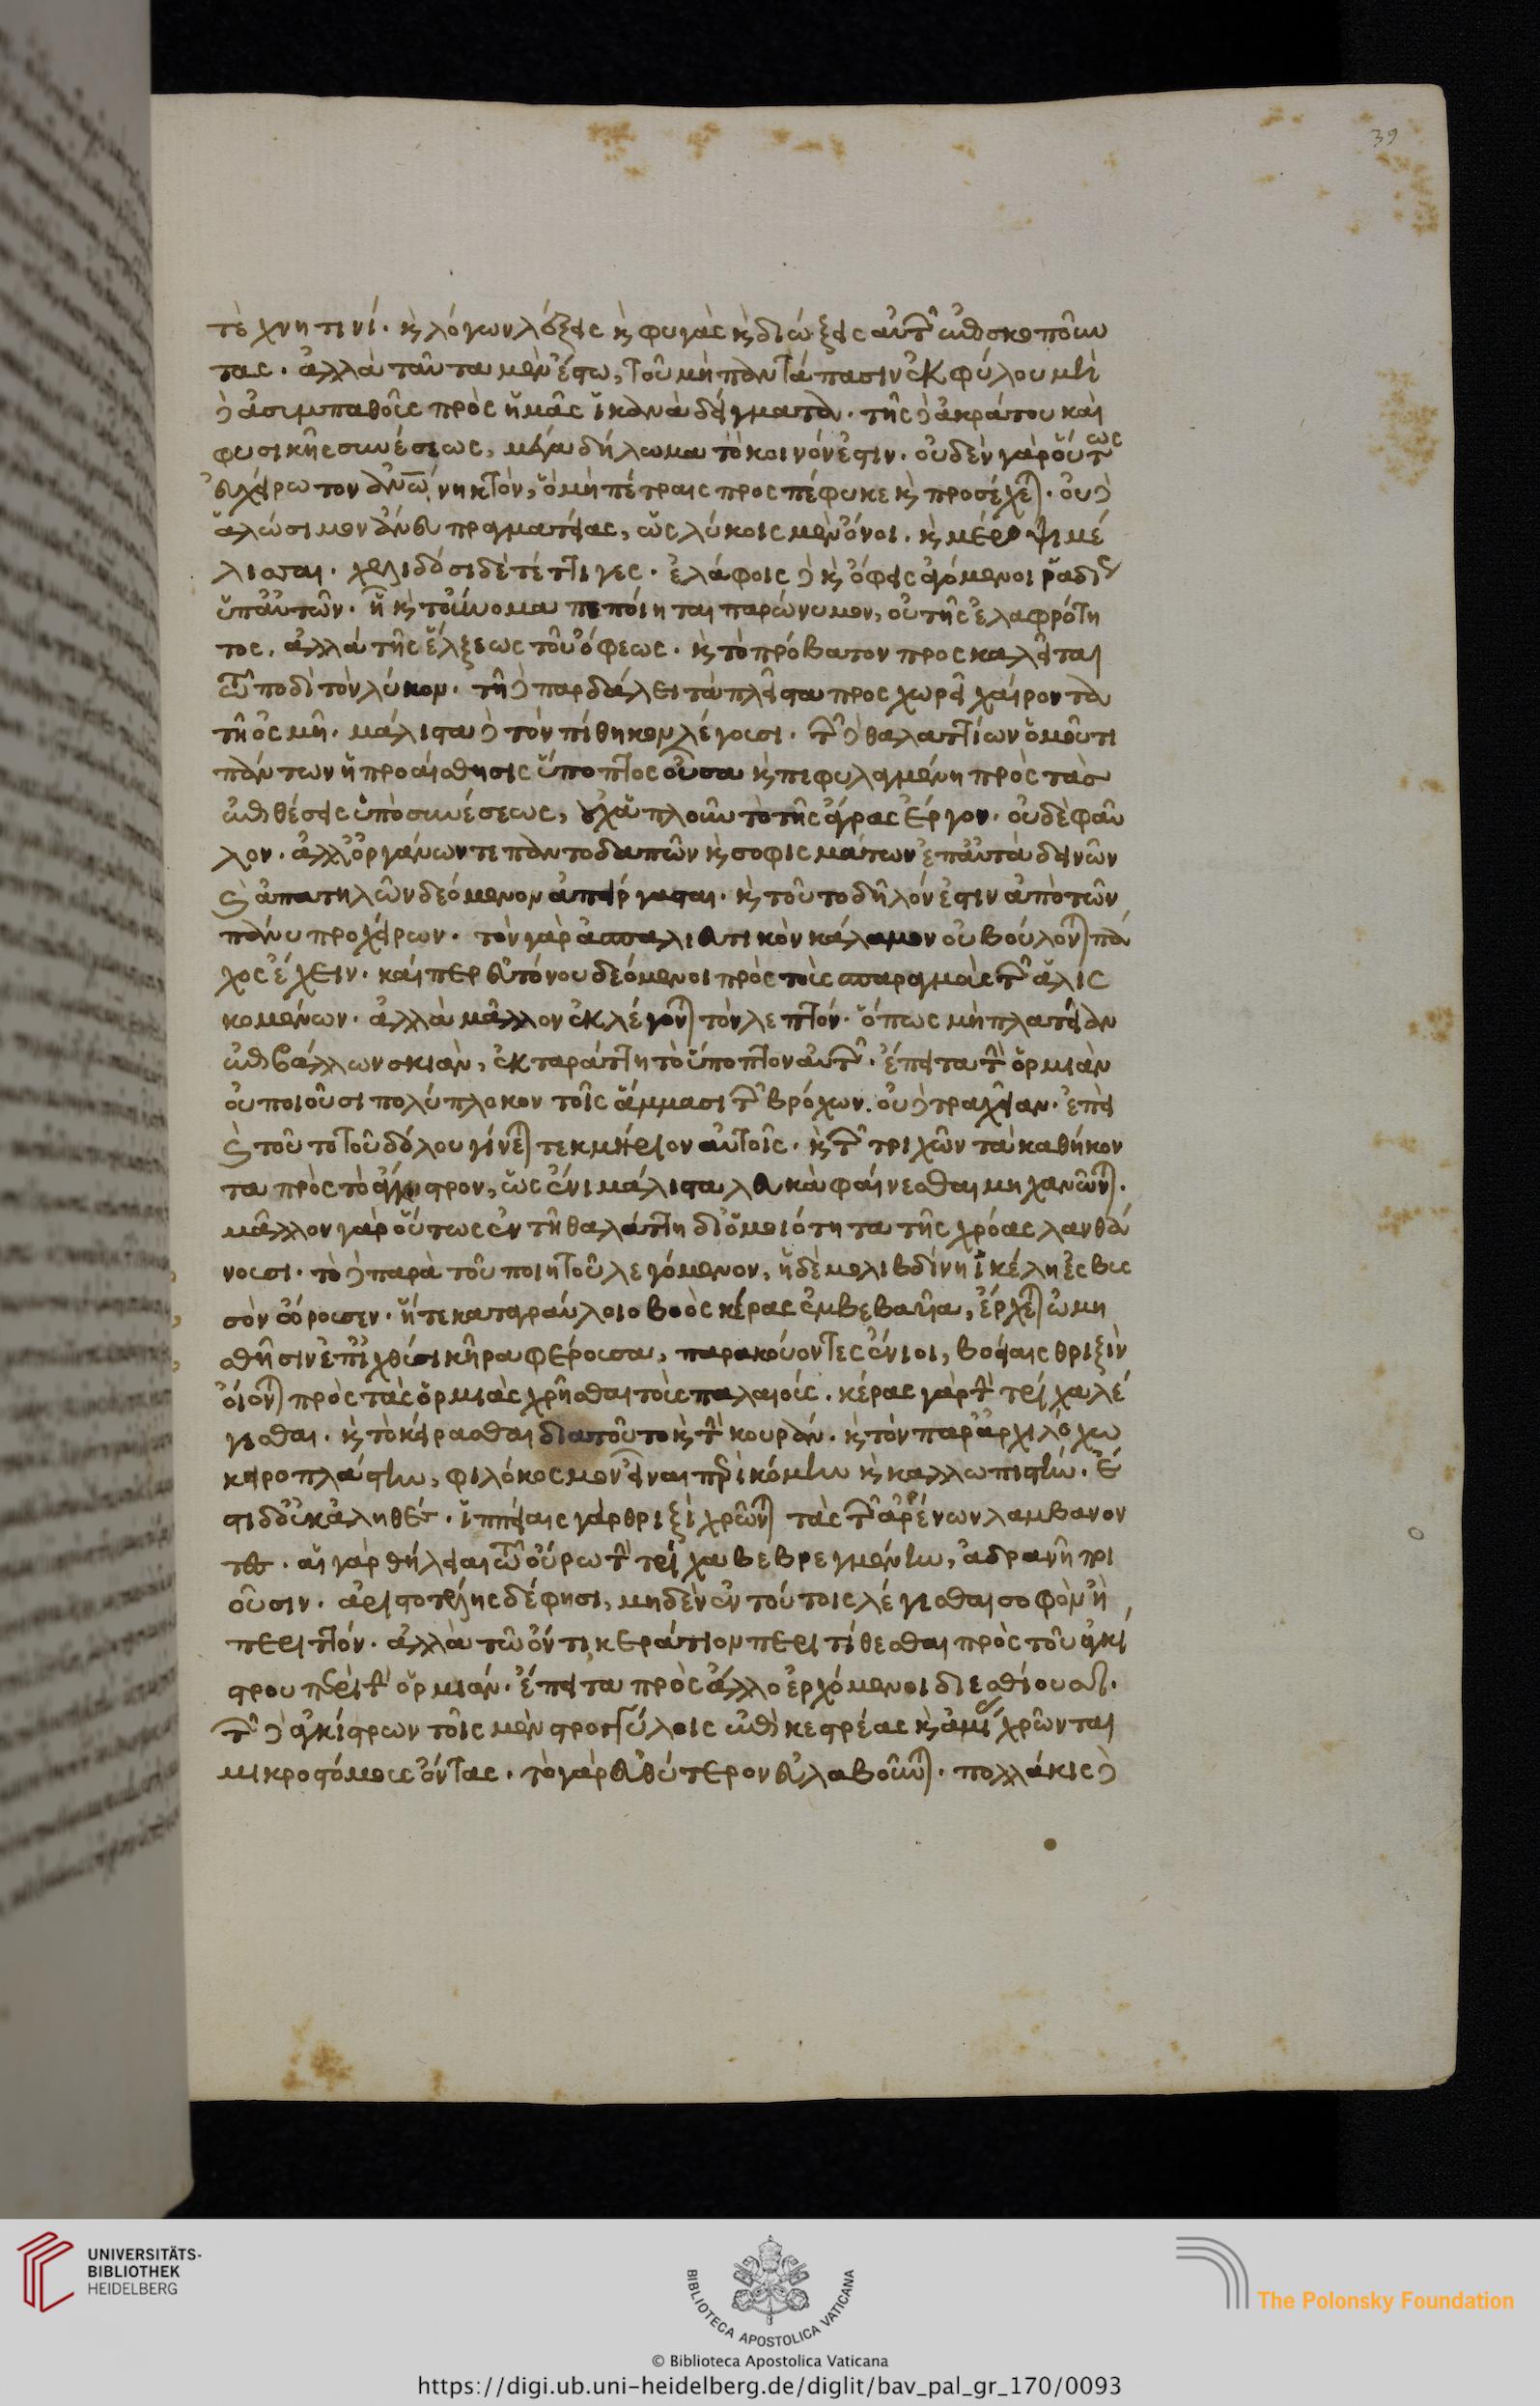 τέχνη τινί. κ λόγων λόξεις κ φυγὰς κ διώξεις αὐτῶν ἐπισκοποῦν
τας. ἀλλὰ ταῦτα μὲν ἔστω, τοῦ μὴ παντάπασιν ἐκφύλου μὴ
δὲ ἀσυμπαθοῦς πρὸς ἡμᾶς ἱκανὰ δείγματα. τῆς δὲ ἀκράτου καὶ
φυσικῆς συνέσεως, μέγα δήλωμα τὸ κοινόν ἐστιν. οὐδὲν γὰρ οὕτως
εὐχείρωτον ἀνῶ νηκτόν, ὃ μὴ πέτραις προσπέφυκε κ προσέχεται. οὐδὲ
ἁλώσιμον ἄνευ πραγματείας, ὡς λύκοις μὲν ὄνοι. κ μέροψι μέ
λισσαι. χελιδόσι δὲ τέττιγες. ἐλάφοις δὲ κ ὄφεις ἀγόμενοι ῥαδίως
ὑπ᾽ αὐτῶν. ᾗ κ τοὔνομα πεποίηται παρώνυμον, οὐ τῆς ἐλαφρότη
τος, ἀλλὰ τῆς ἕλξεως τοῦ ὄφεως. κ τὸ πρόβατον προσκαλεῖται
τῷ ποδὶ τὸν λύκον. τῇ δὲ παρδάλει τὰ πλεῖστα προσχωρεῖ χαίροντα
τῇ ὀσμῇ. μάλιστα δὲ τὸν πίθηκον λέγουσι. τῶν δὲ θαλαττίων ὁμοῦ τι
πάντων ἡ προαίσθησις ὕποπτος οὖσα κ πεφυλαγμένη πρὸς τὰς
ἐπιθέσεις ὑπὸ συνέσεως, οὐχ ἁπλοῦν τὸ τῆς ἄγρας ἔργον. οὐδὲ φαῦ
λον. ἀλλ᾽ ὀργάνων τε παντοδαπῶν κ σοφισμάτων ἐπ᾽ αὐτὰ δεινῶν
κ ἀπατηλῶν δεόμενον ἀπείργασται. κ τοῦτο δῆλόν ἐστιν ἀπὸ τῶν
πάνυ προχείρων. τὸν γὰρ ἀσπαλιευτικὸν κάλαμον οὐ βούλονται πά
χος ἔχειν. καίπερ εὐτόνου δεόμενοι πρὸς τοὺς σπαραγμοὺς τῶν ἁλις
κομένων. ἀλλὰ μᾶλλον ἐκλέγονται τὸν λεπτόν. ὅπως μὴ πλατεῖαν
ἐπιβάλλων σκιάν, ἐκταράττη τὸ ὕποπτον αὐτῶν. ἔπειτα τὴν ὁρμιὰν
οὐ ποιοῦσι πολύπλοκον τοῖς ἅμμασι τῶν βρόχων. οὐδὲ τραχεῖαν. ἐπεὶ
κ τοῦτο τοῦ δόλου γίνεται τεκμήριον αὐτοῖς. κ τῶν τριχῶν τὰ καθήκον
τα πρὸς τὸ ἄγκιστρον, ὡς ἔνι μάλιστα λευκὰ φαίνεσθαι μηχανῶνται.
μᾶλλον γὰρ οὕτως ἐν τῇ θαλάττη δι᾽ ὁμοιότητα τῆς χρόας λανθά
νουσι. τὸ δὲ παρὰ τοῦ ποιητοῦ λεγόμενον, ἡ δὲ μολιβδίνη ἰκέλη ἐς βυς
σὸν ὄρουσεν. ἥ τε κατ᾽ ἀγραύλοιο βοὸς κέρας ἐμβεβαυῖα, ἔρχεται ὠμη
σθῇσιν ἐπ᾽ ἰχθύσι κῆρα φέρουσα, παρακούοντες ἔνιοι, βοείαις θριξὶν
οἴονται πρὸς τὰς ὁρμιὰς χρῆσθαι τοὺς παλαιούς. κέρας γὰρ τὴν τρίχα λέ
γεσθαι. κ τὸ κείρασθαι διὰ τοῦτο κ τὴν κουράν. κ τὸν παρ᾽ ἀρχιλόχω
κεροπλάστην, φιλόκοσμον εἶναι περὶ κόμην κ καλλωπιστήν. ἔ
στι δ᾽ οὐκ ἀληθές. ἱππείαις γὰρ θριξὶ χρῶνται τὰς τῶν ἀρρένων λαμβάνον
τες. αἱ γὰρ θήλειαι τῷ οὔρω τὴν τρίχα βεβρεγμένην, ἀδρανῆ ποι
οῦσιν. ἀριστοτέλης δέ φησι, μηδὲν ἐν τούτοις λέγεσθαι σοφὸν ἢ
περιττόν. ἀλλὰ τῷ ὄντι κεράτιον περιτίθεσθαι πρὸς τοῦ ἀγκί
στρου περὶ τὴν ὁρμιάν. ἔπειτα πρὸς ἄλλο ἐρχόμενοι διεσθίουσι.
τῶν δὲ ἀγκίστρων τοῖς μὲν στρογγύλοις ἐπὶ κεστρέας κ ἀμίας χρῶνται
μικροστόμους ὄντας. τὸ γὰρ εὐθύτερον εὐλαβοῦνται. πολλάκις δὲ
39
UNIVERSITÄTS-
BIBLIOTHEK
HEIDELBERG
BIBLIOTECA APOSTOLICA VATICANA
© Biblioteca Apostolica Vaticana
The Polonsky Foundation
https://digi.ub.uni-heidelberg.de/diglit/bav_pal_gr_170/0093